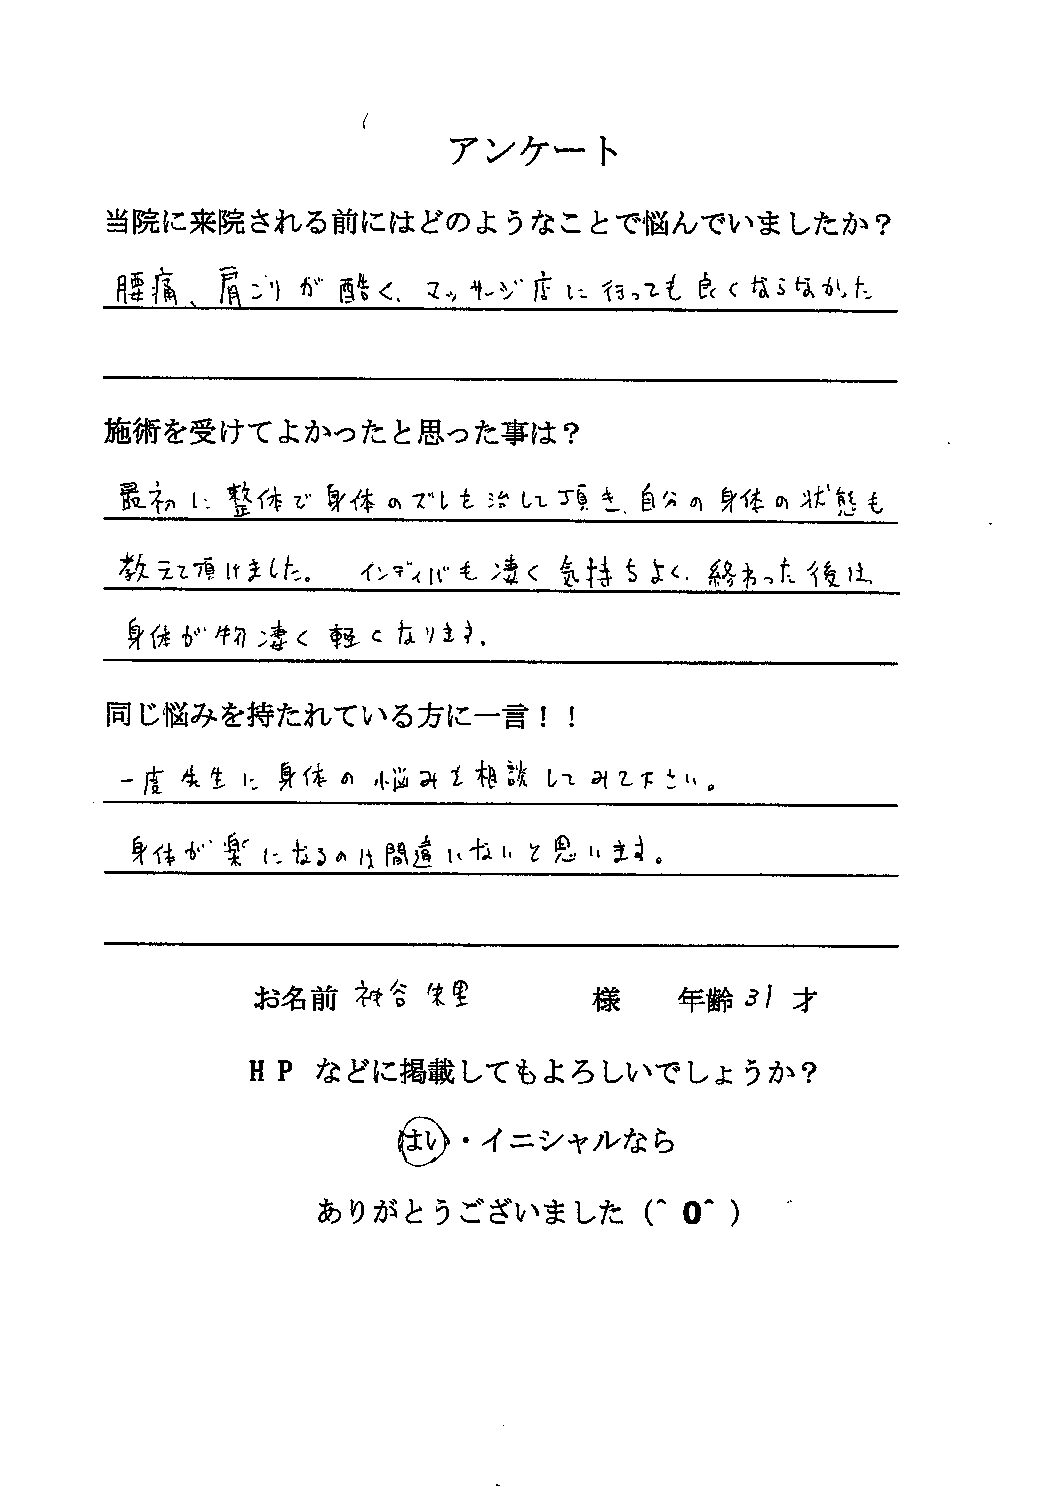 アンケート
当院に来院される前にはどのようなことで悩んでいましたか？
腰痛、肩こりが酷く、マッサージ店に行っても良くならなかった
施術を受けてよかったと思った事は？
最初に整体で身体のズレも治して頂き、自分の身体の状態も
教えて頂けました。 インディバも凄く気持ちよく、終わった後は
身体が物凄く軽くなります。
同じ悩みを持たれている方に一言！！
一度先生に身体の悩みを相談してみて下さい。
身体が楽になるのは間違いないと思います。
お名前 神谷朱里 様 年齢 31 才
ＨＰ などに掲載してもよろしいでしょうか？
はい・イニシャルなら
ありがとうございました（＾０＾）